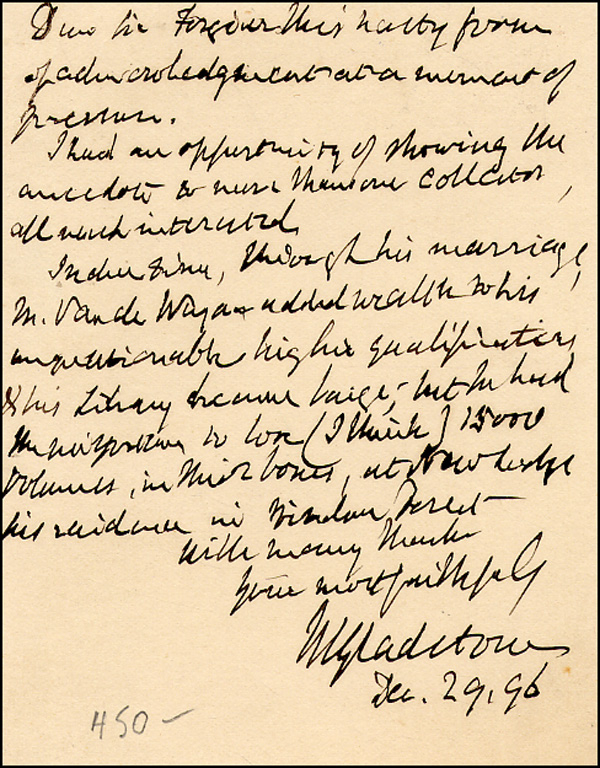 Dear Sir Forgive this hasty form
of acknowledgment at a moment of
pressure.
I had an opportunity of showing the
anecdote to more than one collector,
all much interested.
In due time, through his marriage,
M. Van de Weyer added wealth to his
unquestionable higher qualifications
& his Library became large; but he had
the misfortune to lose (I think) 15000
volumes, in their boxes, at New Lodge
his residence in Windsor Forest
With many thanks
Your most faithful
WGladstone
Dec. 29, 96
450 -